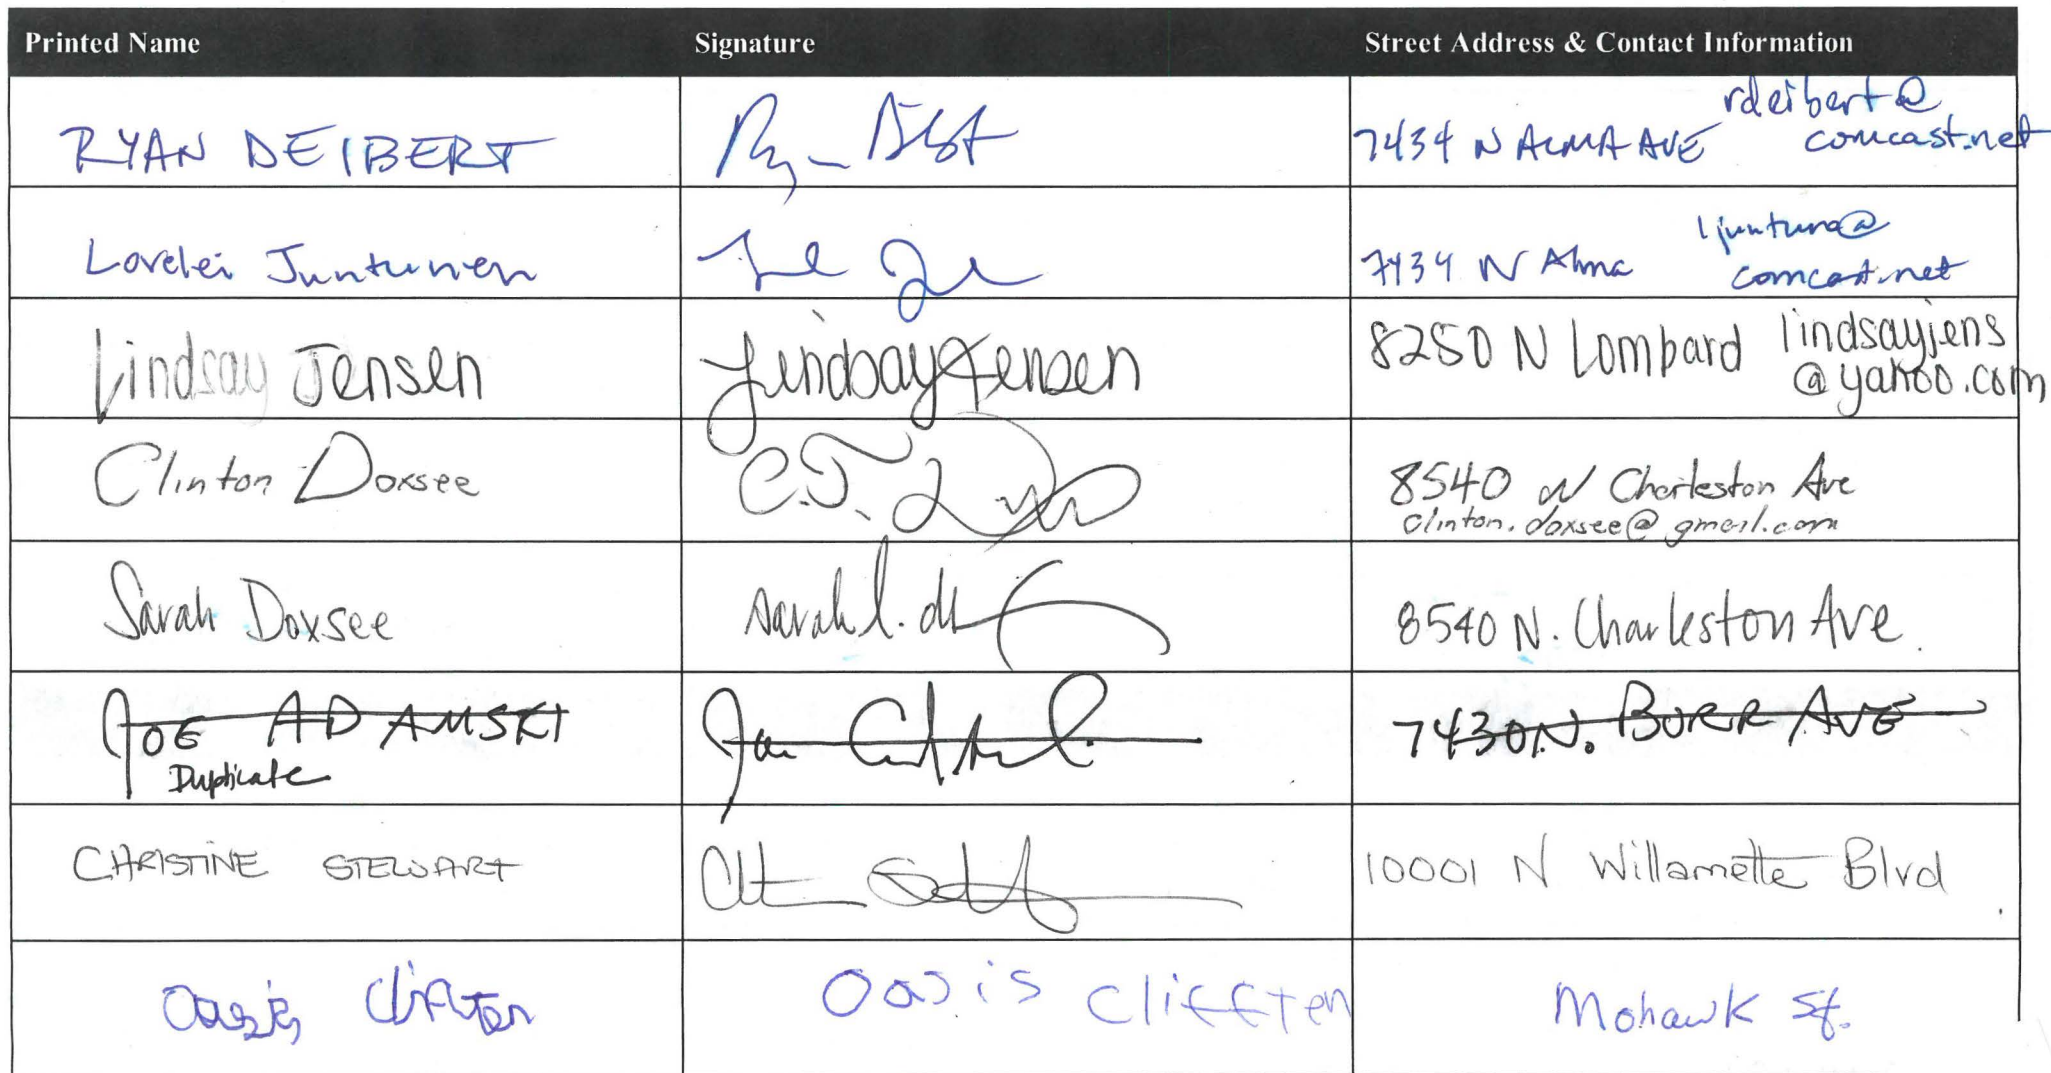 Printed Name Signature Street Address & Contact Information
RYAN DEIBERT 7434 N ALMA AVE rdeibert@
comcast.net
Lorelei Juntunen 7434 N Alma ljuntune@
comcast.net
Lindsay Jensen Lindsay Jensen 8250 N Lombard lindsayjens
@yahoo.com
Clinton Doxsee C.J. 8540 N Charleston Ave
clinton.doxsee@gmail.com
Sarah Doxsee sarah l. 8540 N. Charleston Ave.
JOE ADAMSKI 7430 N. BURR AVE
Duplicate
CHRISTINE STEWART 10001 N Willamette Blvd
Oasis Clifften Oasis Clifften Mohawk St.